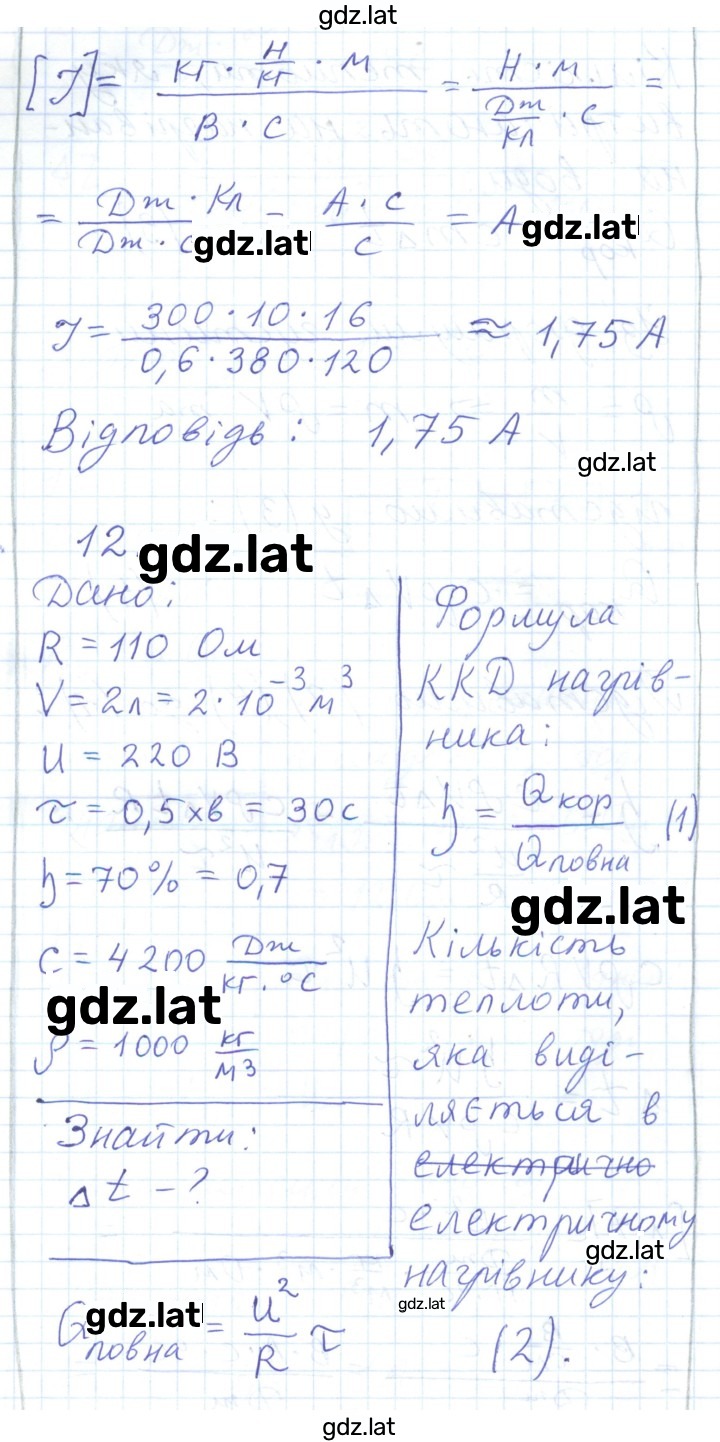 gdz.lat
[I] = кг · Н/кг · м / В · с = Н · м / Дж/Кл · с =
= Дж · Кл / Дж · с = А · с / с = А
gdz.lat gdz.lat
I = 300 · 10 · 16 / 0,6 · 380 · 120 ≈ 1,75 А
Відповідь : 1,75 А
gdz.lat
12.
gdz.lat
Дано:
R = 110 Ом
V = 2л = 2 · 10⁻³ м³
U = 220 В
τ = 0,5 хв = 30с
η = 70% = 0,7
c = 4200 Дж/кг · °С
gdz.lat
ρ = 1000 кг/м3
Знайти:
Δt – ?
Формула
ККД нагрів-
ника:
η = Qкор / Qповна (1)
gdz.lat
Кількість
теплоти,
яка виді-
ляється в
електрично
електричному
gdz.lat
нагрівнику:
gdz.lat
gdz.lat
Qповна = U²/R τ (2).
gdz.lat